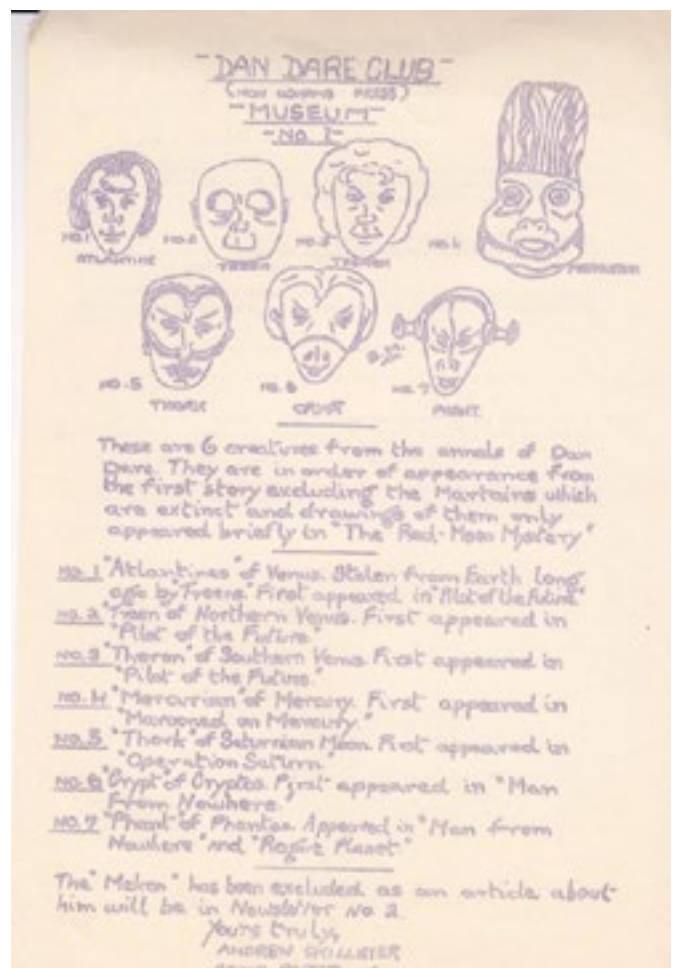 - DAN DARE CLUB -
- MUSEUM -
- NO. 1 -
NO. 1
ATLANTINE
NO. 2
TREEN
NO. 3
THERON
NO. 4
MERCURIAN
NO. 5
THORK
NO. 6
CRYPT
NO. 7
PHANT.
These are 6 creatures from the annals of Dan
Dare. They are in order of appearance from
the first story excluding the Martains which
are extinct and drawings of them only
appeared briefly in "The Red-Moon Mystery"
NO. 1 "Atlantines" of Venus. Stolen from Earth long
ago by "Treens" First appeared in "Pilot of the Future"
NO. 2 "Treen of Northern Venus. First appeared in
"Pilot of the Future."
NO. 3 "Theron" of Southern Venus. First appeared in
"Pilot of the Future."
NO. 4 "Mercurian" of Mercury. First appeared in
"Marooned on Mercury."
NO. 5 "Thork" of Saturnian Moon. First appeared in
"Operation Saturn."
NO. 6 "Crypt" of Cryptos. First appeared in "Man
From Nowhere."
NO. 7 "Phant" of Phantos. Appeared in "Man from
Nowhere" and "Rogue Planet."
The "Mekon" has been excluded as an article about
him will be in Newsletter No 2.
Yours truly,
ANDREW